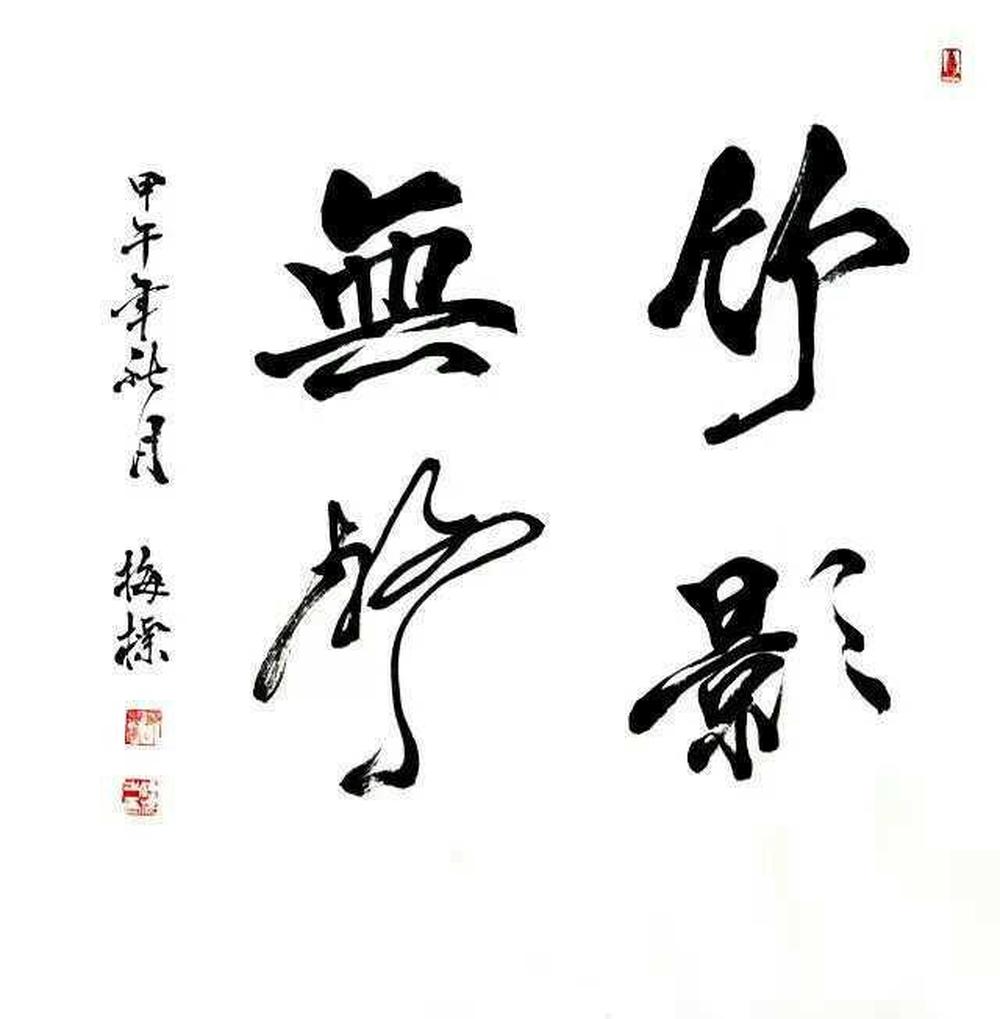 竹影
無聲
甲午年秋月 梅檪